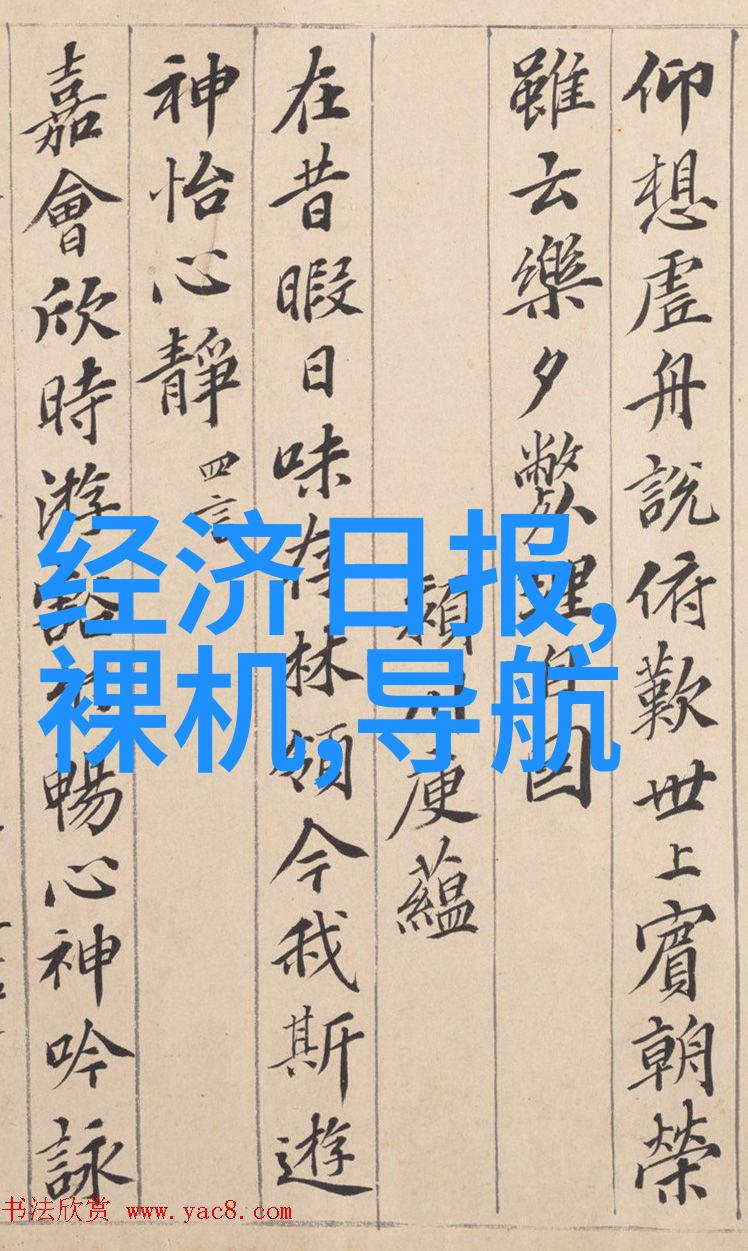 仰想虗舟說俯歎世上賓朝榮
雖云樂夕弊理自因
潁川庾蘊
在昔暇日味存林領今我斯遊
神怡心靜 四言
嘉會欣時游豁暢心神吟詠
经济日报,
裸机,导航
书法欣赏 www.yac8.com